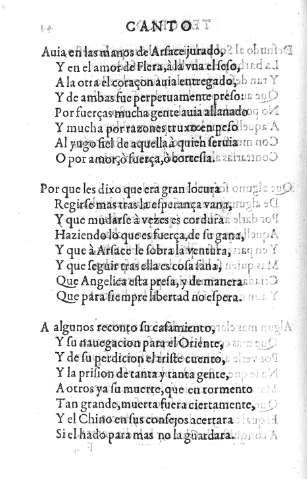 CANTO
Auia en las manos de Arsace jurado,
Y en el amor de Flera, à la vna el seso,
A la otra el coraçon auia entregado,
Y de ambas fue perpetuamente preso:
Por fuerças mucha gente auia allanado
Y mucha por razones truxo en peso
Al yugo fiel de aquella à quien seruia
O por amor, ò fuerça, ò cortesia.
Por que les dixo que era gran locura
Regirse mas tras la esperança vana,
Y que mudarse à vezes es cordura
Haziendo lo que es fuerça, de su gana,
Y que à Arsace le sobra la ventura,
Y que seguir tras ella es cosa sana,
Que Angelica esta presa, y de manera
Que para siempre libertad no espera.
A algunos reconto su casamiento,
Y su nauegacion para el Oriente,
Y de su perdicion el triste cuento,
Y la prision de tanta y tanta gente,
A otros ya su muerte, que en tormento
Tan grande, muerta fuera ciertamente,
Y el Chino en sus consejos acertara
Si el hado para mas no la guardara.